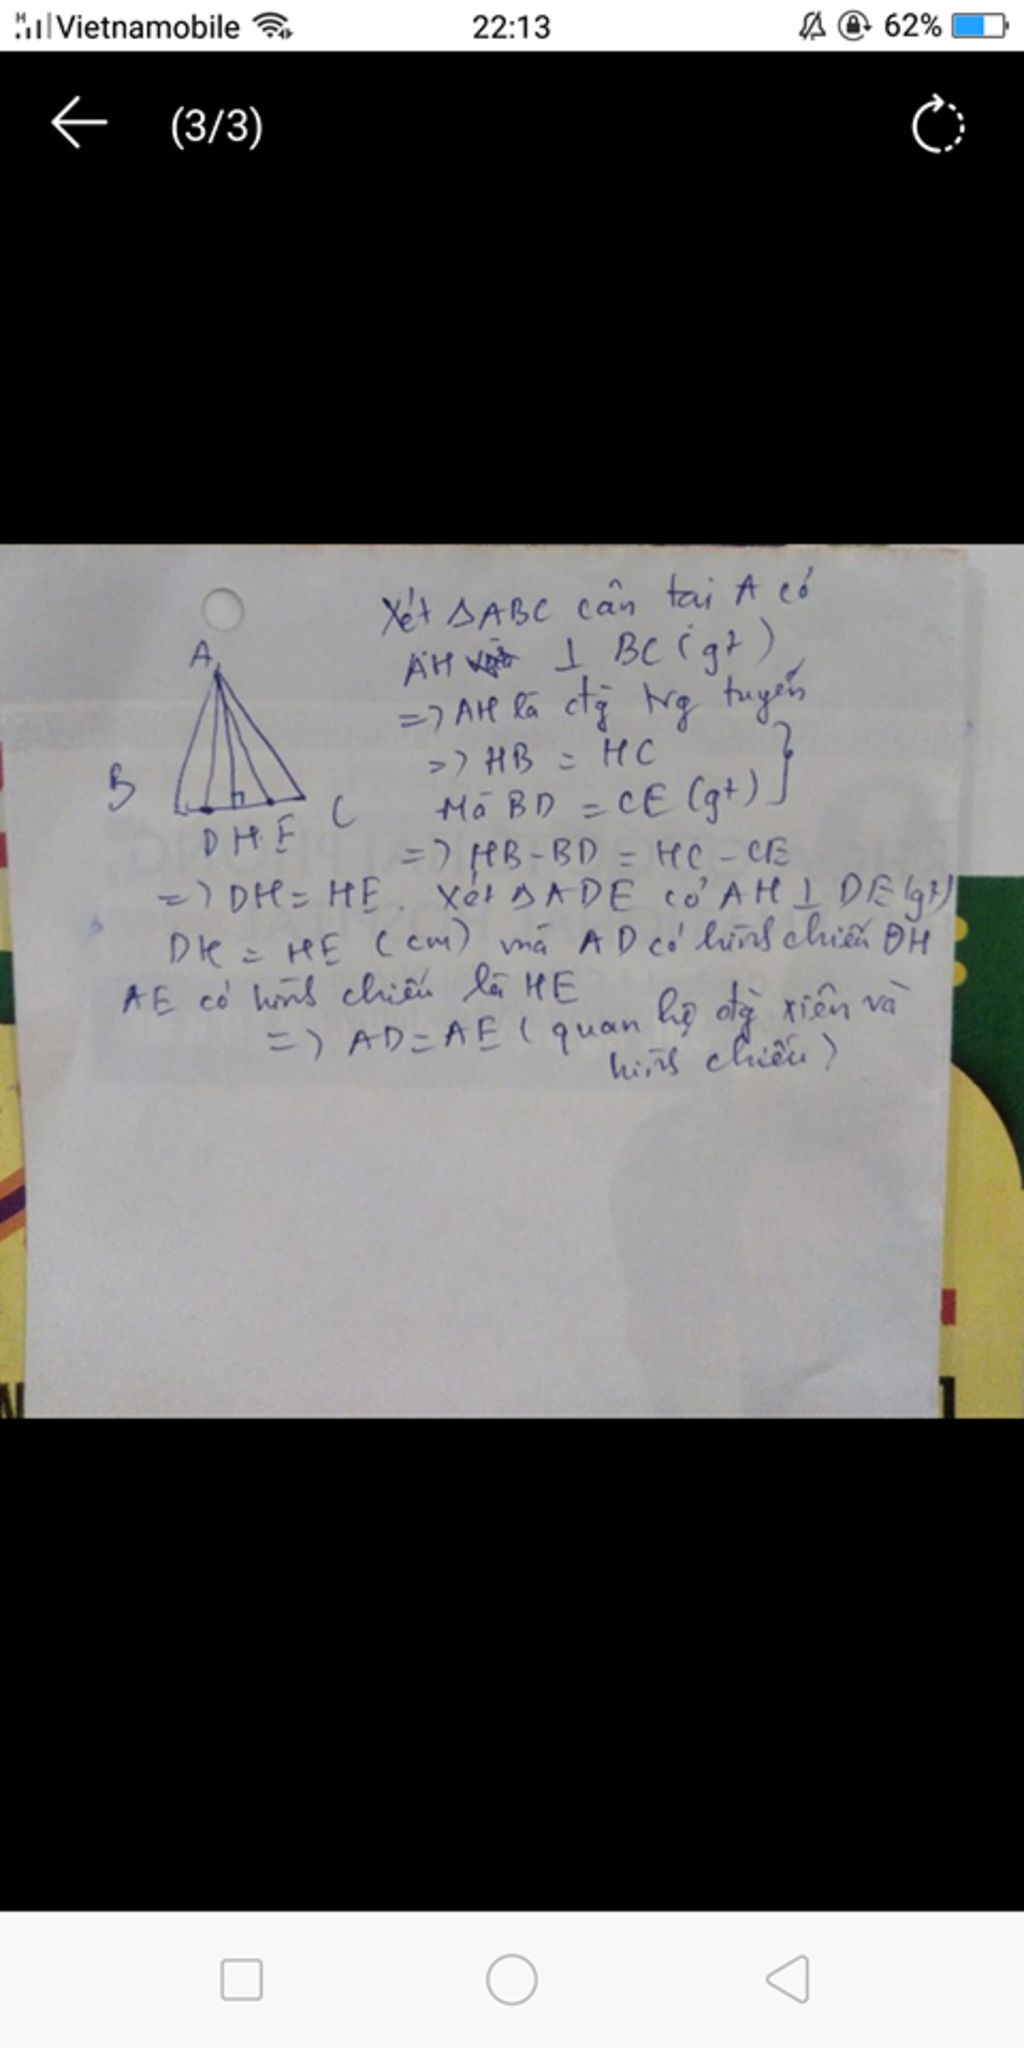 Vietnamobile 22:13 62%
(3/3)
Xét ΔABC cân tại A có
AH ⊥ BC (gt)
=> AH là đtg trg tuyến
=> HB = HC
Mà BD = CE (gt) }
=> HB - BD = HC - CE
=> DH = HE. Xét ΔADE có AH ⊥ DE (gt)
DH = HE (cm) mà AD có hình chiếu DH
AE có hình chiếu là HE
=> AD = AE (quan hệ đtg xiên và
hình chiếu)
A
B
C
D H E